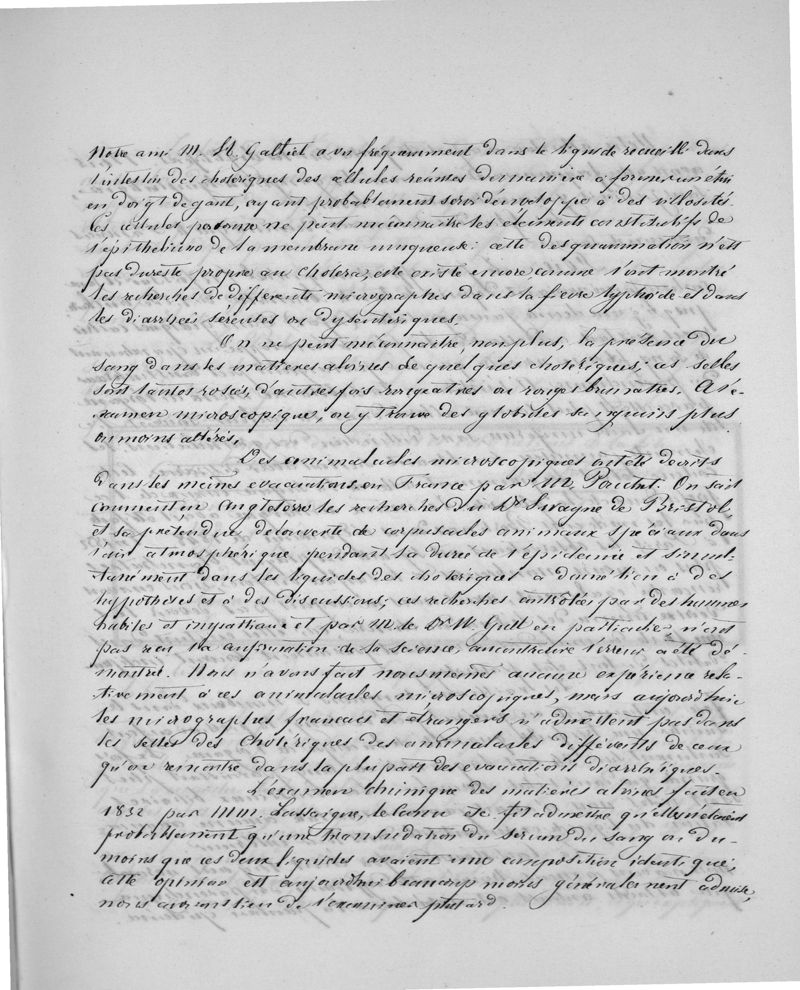 Notre ami M. H. Galliet a vu fréquemment dans le liquide recueilli dans
l'intestin des cholériques des cellules réunies de manière à former un étui
en doigt de gant, ayant probablement servi d'enveloppe à des villosités.
Ces cellules personne ne peut méconnaitre les éléments constitutifs de
l'épithelium de la membrane muqueuse: cette desquammation n'est
pas du reste propre au cholera; elle existe encore, comme l'ont montré
les recherches de différents micrographes dans la fievre typhoïde et dans
les diarrhées séreuses ou dysentériques.
On ne peut méconnaitre, non plus, la présence du
sang dans les matières alvines de quelques cholériques; ces selles
sont tantot rosées, d'autres fois rougeatres ou rouges brunatres. A l'e-
xamen microscopique, on y trouve des globules sanguins plus
ou moins altérés.
Des animalcules microscopiques ont été décrits
dans les mêmes évacuations en France par M. Pouchet. On sait
comment en Angleterre les recherches du Dr. Swayne de Bristol,
et sa prétendue découverte de corpuscules animaux spéciaux dans
l'air atmospherique pendant la durée de l'épidémie et simul-
tanément dans les liquides des cholériques a donné lieu à des
hypothèses et à des discussions; ces recherches contrôlées par des hommes
habiles et impartiaux et par M. le Dr W Gull en particulier n'ont
pas reçu la confirmation de la science, au contraire l'erreur a été dé-
montrée. Nous n'avons fait nous mêmes aucune expérience rela-
tivement à ces animalcules microscopiques, mais aujourd'hui
les micrographes francais et étrangers n'admettent pas dans
les selles des Cholériques des animalcules différents de ceux
qu'on rencontre dans la plupart des evacuations diarrhéiques.
L'examen chimique des matières alvines fait en
1832 par MM. Lassaigne, le Canu &c. fit admettre qu'elles n'étaient
probablement qu'une transudation du serum du sang ou du-
moins que ces deux liquides avaient une composition identique;
cette opinion est aujourd'hui beaucoup moins généralement admise,
nous aurons lieu de l'examiner plus tard.